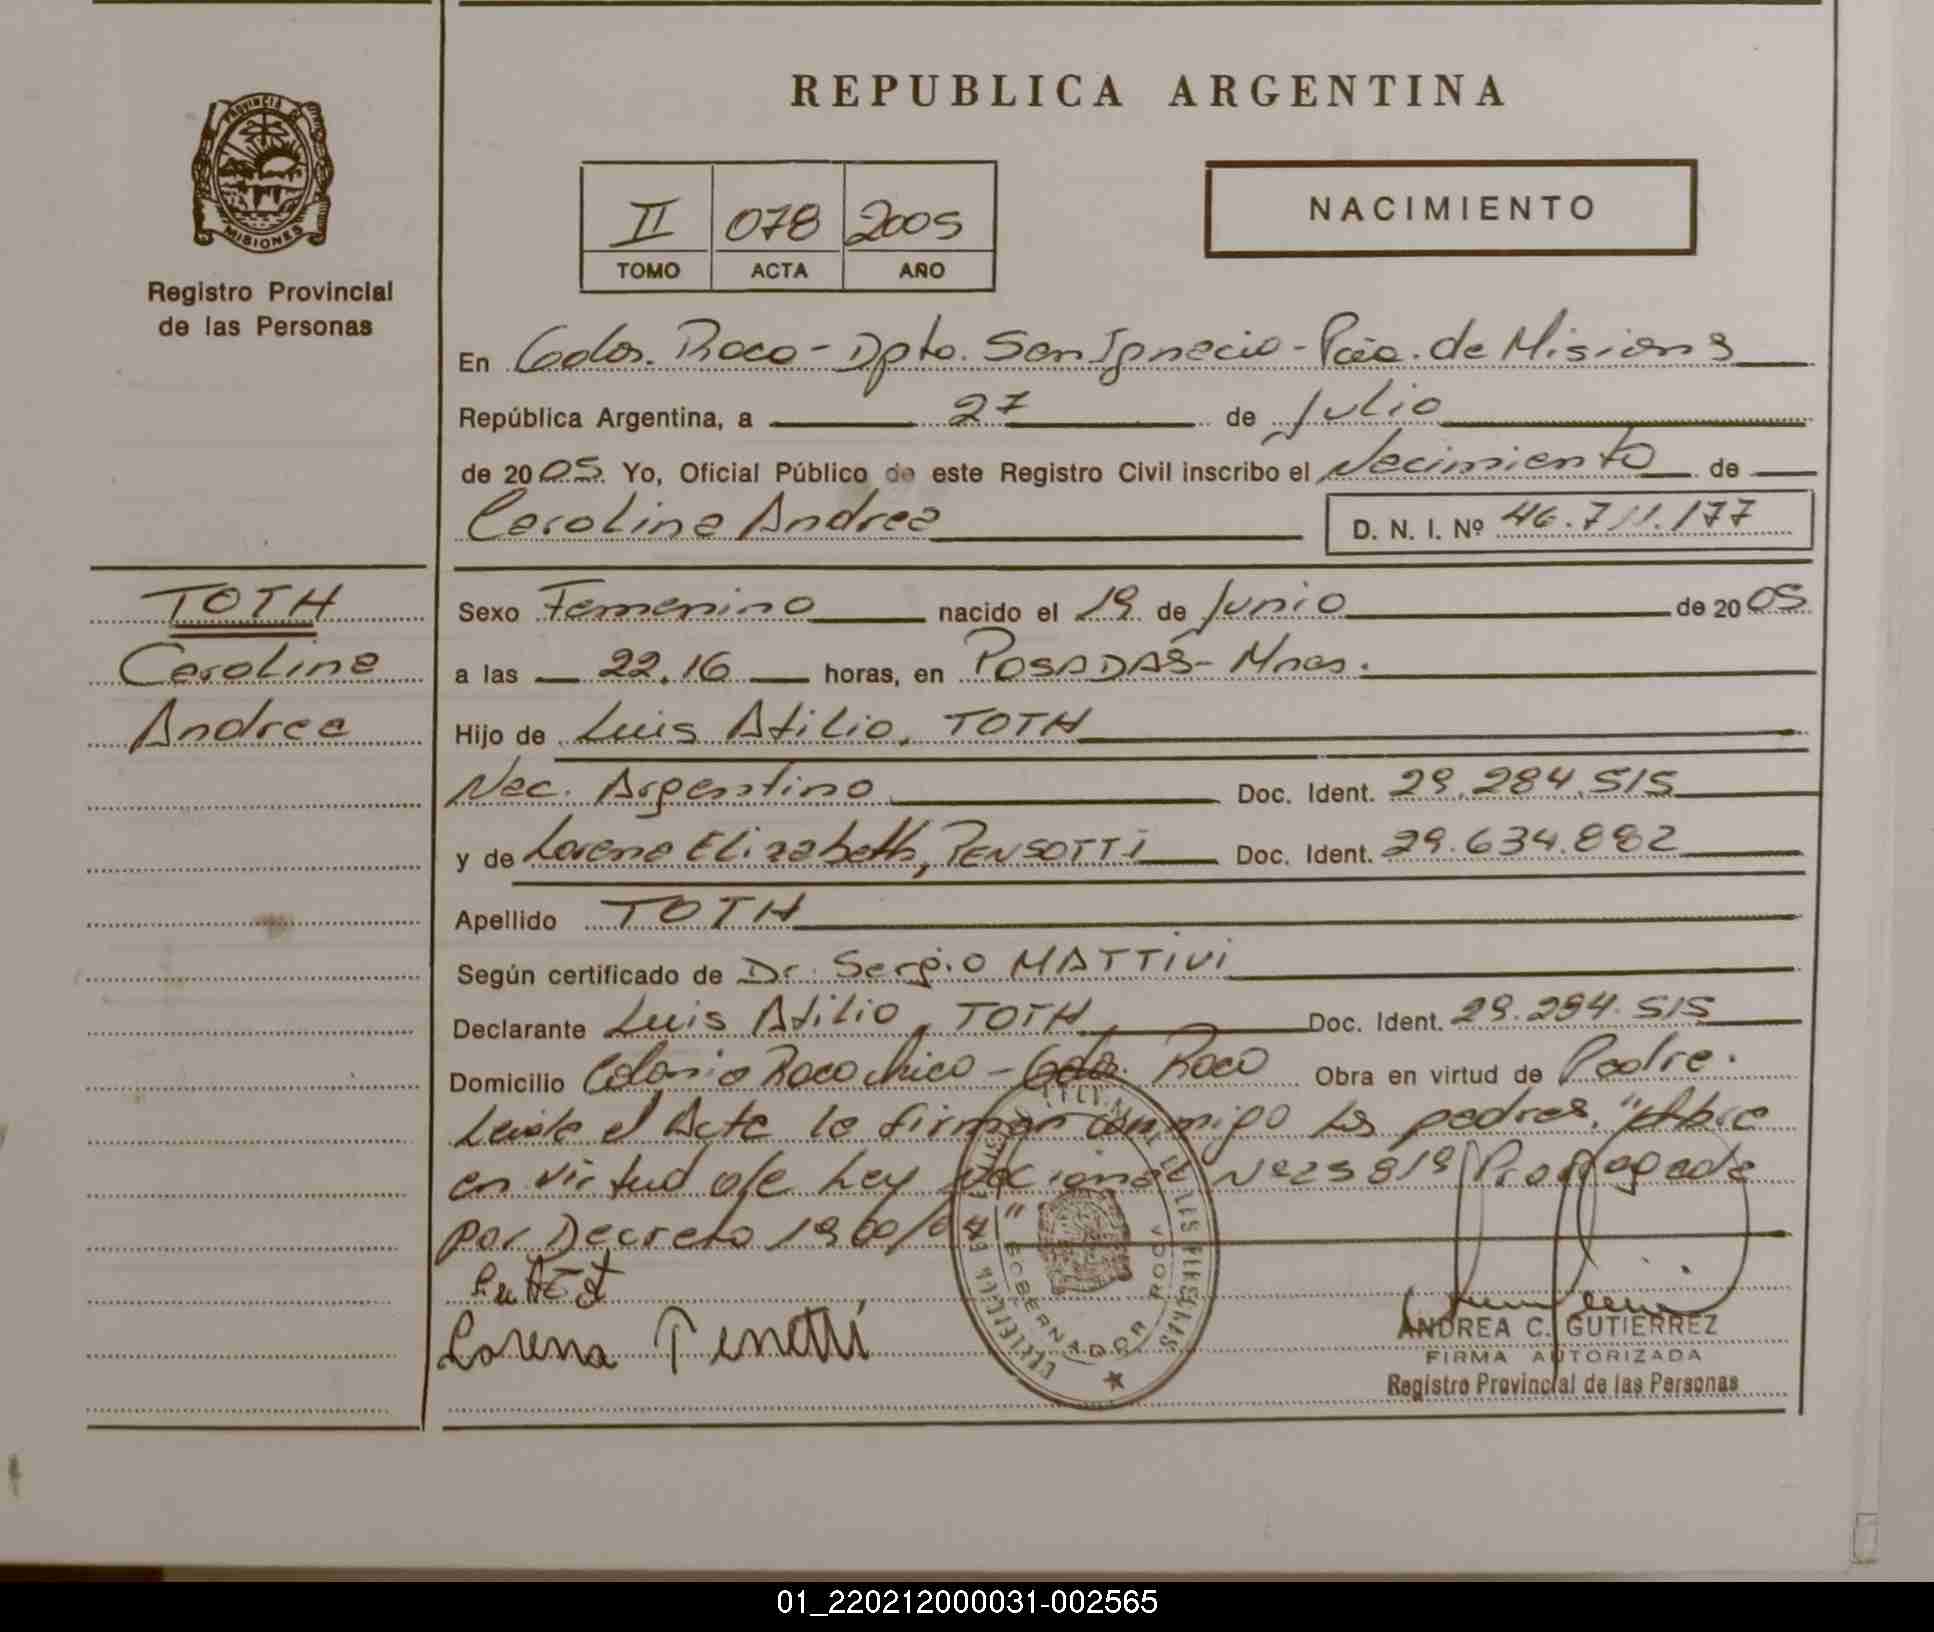 REPUBLICA ARGENTINA
PROVINCIA DE
MISIONES
Registro Provincial
de las Personas
II 078 2005
TOMO ACTA AÑO
NACIMIENTO
En Gdor. Roca - Dpto. San Ignacio - Pcia. de Misiones
República Argentina, a 27 de Julio
de 2005. Yo, Oficial Público de este Registro Civil inscribo el Nacimiento de
Carolina Andrea D. N. I. Nº 46.711.177
TOTH
Carolina
Andrea
Sexo Femenino nacido el 19 de Junio de 2005
a las 22.16 horas, en POSADAS - Mnes.
Hijo de Luis Atilio, TOTH
Nac. Argentino Doc. Ident. 29.284.515
y de Lorena Elizabeth, PENSOTTI Doc. Ident. 29.634.882
Apellido TOTH
Según certificado de Dr. Sergio MATTIVI
Declarante Luis Atilio, TOTH Doc. Ident. 29.284.515
Domicilio Colonia Roca chica - Gdor. Roca Obra en virtud de Padre.
Leida el Acta la firman conmigo los padres. "Abre
en virtud de Ley Nacional Nº 25819 Prorrogada
por Decreto 1900/04"
Lorena Penotti
GOBERNADOR ROCA
ANDREA C. GUTIERREZ
FIRMA AUTORIZADA
Registro Provincial de las Personas
01_220212000031-002565